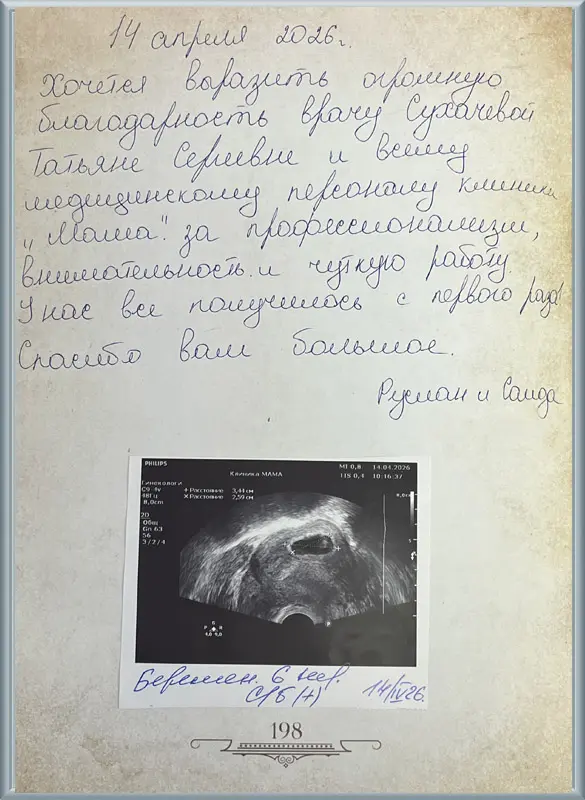 14 апреля 2026г.
Хочется выразить огромную
благодарность врачу Сухачевой
Татьяне Сергеевне и всему
медицинскому персоналу клиники
„Мама". за профессионализм,
внимательность и чуткую работу
У нас все получилось с первого раза!
Спасибо вам большое.
Руслан и Саида
PHILIPS
Клиника МАМА
MI 0,8 14.04.2026
TIS 0,4 10:46:37
Гинекологи
C9-4v
48Гц
8,0cm
+ Расстояние 3,44 см
× Расстояние 2,59 см
2D
Общ
Gn 63
56
3/2/4
Беремен. 6 нед.
С/б (+)
14/IV26.
198